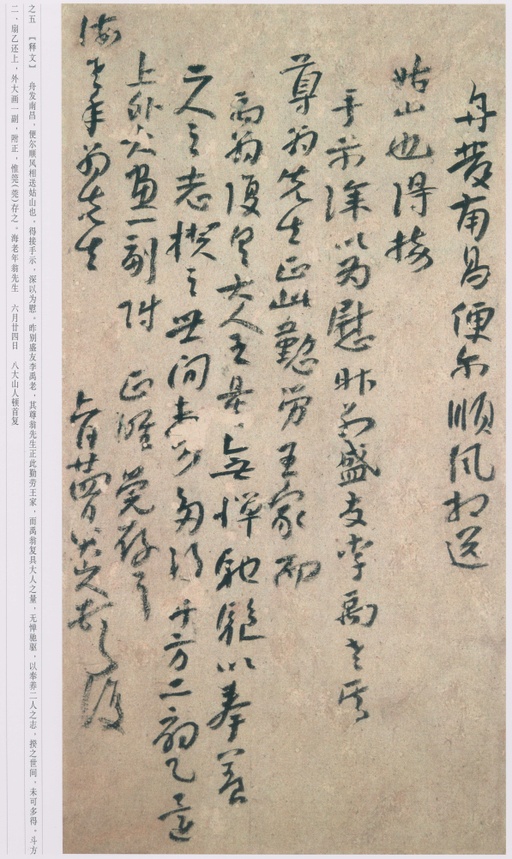 舟發南昌便尔順风相送
姑山也得接
手示深以为慰昨别盛友李禹老其
尊翁先生正此勤劳王家而
禹翁復具大人之量無憚馳驅以奉養
二人之志揆之世间未可多得斗方二扇乙還
上外大畫一副附 正惟莞存之
海老年翁先生 六月廿四日八大山人顿首復
之五 【释文】 舟发南昌，便尔顺风相送姑山也，得接手示，深以为慰，昨别盛友李禹老，其尊翁先生正此勤劳王家，而禹翁复具大人之量，无惮驰驱，以奉养二人之志，揆之世间，未可多得，斗方
二，扇乙还上，外大画一副，附正，惟莞(莞)存之，海老年翁先生 六月廿四日 八大山人顿首复